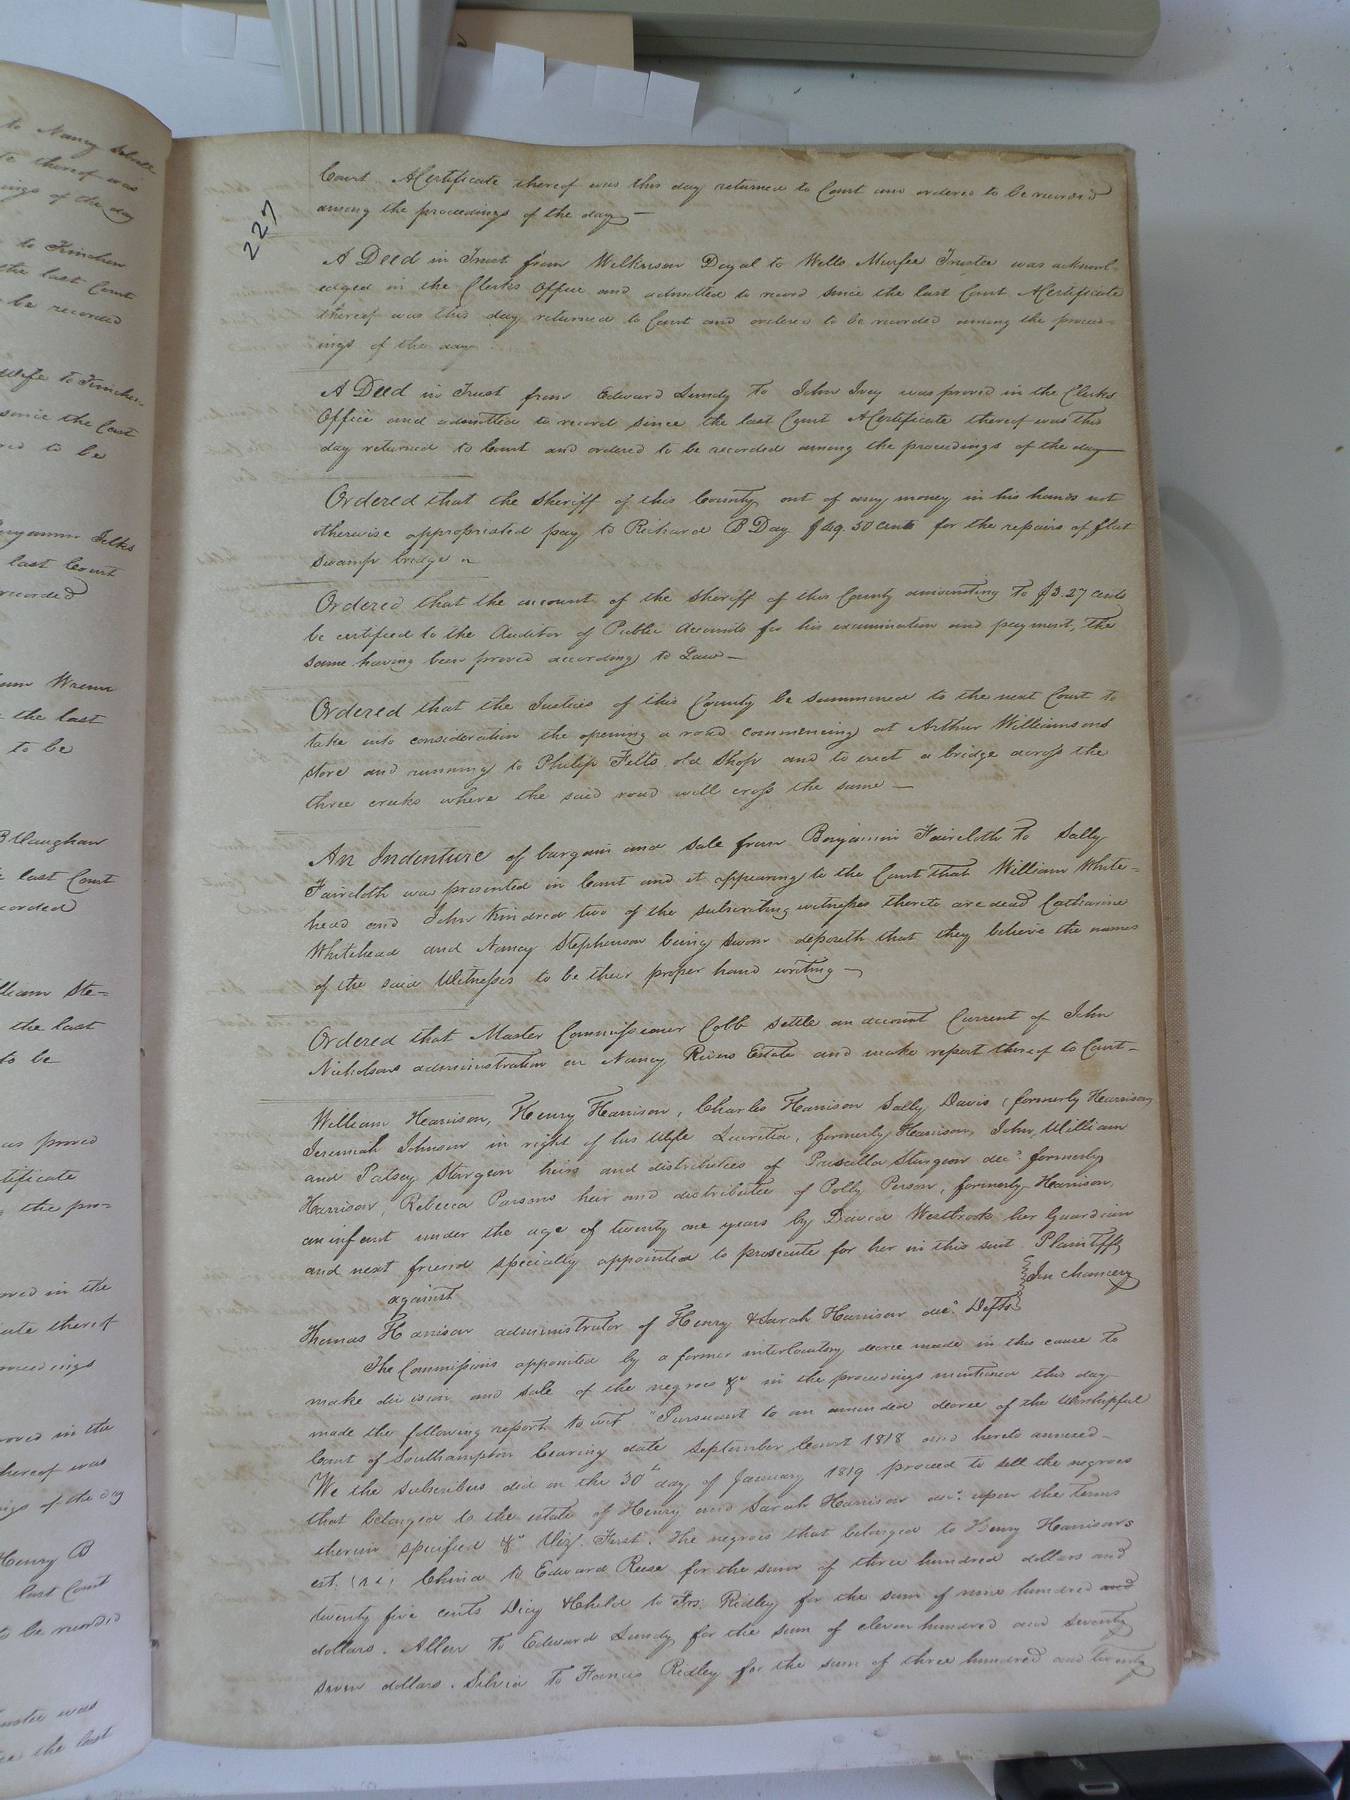 to Nancy
thereof was
ings of the day
to Kinchen
the last Court
be recorded
wife to Kinchen
since the last
to be
Jelks
last Court
recorded
Wrenn
the last
to be
Vaughan
last Court
corded
lliam Ste=
the last
to be
as proved
tificate
the pro=
oved in the
cate thereof
roceedings
roved in the
thereof was
ings of the day
Henry B
last Court
to be recorded
ustee was
ce the last
227
Court A Certificate thereof was this day returned to Court and ordered to be recorded
among the proceedings of the day —
A Deed in Trust from Wilkinson Doyal to Wells Murfee Trustee was acknowl-
edged in the Clerks Office and admitted to record since the last Court A Certificate
thereof was this day returned to Court and ordered to be recorded among the proceed-
ings of the day
A Deed in Trust from Edward Lundy to John Ivey was proved in the Clerks
Office and admitted to record since the last Court A Certificate thereof was this
day returned to Court and ordered to be recorded among the proceedings of the day
Ordered that the Sheriff of this County out of any money in his hands not
otherwise appropriated pay to Richard B Day 50 cents for the repairs of flat
swamp bridge
Ordered that the account of the Sheriff of this County amounting to $3.27 cents
be certified to the Auditor of Public Accounts for his examination and payment, the
same having been proved according to Law —
Ordered that the Justices of this County be summoned to the next Court to
take into consideration the opening a road commencing at Arthur Williamsons
store and running to Philip Felts old Shop and to erect a bridge across the
three creeks where the said road will cross the same —
An Indenture of bargain and sale from Benjamin Faircloth to Sally
Faircloth was presented in Court and it appearing to the Court that William White=
head and John Kindred two of the subscribing witnesses thereto are dead Catharine
Whitehead and Nancy Stephenson being sworn deposeth that they believe the names
of the said Witnesses to be their proper hand writing —
Ordered that Master Commissioner Cobb settle an account Current of John
Nicholsons administration on Nancy Rivers Estate and make report thereof to Court —
William Harrison, Henry Harrison, Charles Harrison Sally Davis (formerly Harrison
Jeremiah Johnson in right of his Wife Lucretia, formerly Harrison, John, William
and Patsey Sturgeon heirs and distributees of Priscilla Sturgeon decd. formerly
Harrison, Rebecca Parsons heir and distributee of Polly Person, formerly Harrison,
an infant under the age of twenty one years by David Westbrook her Guardian
and next friend specially appointed to prosecute for her in this suit Plaintiffs
against
In Chancery
Thomas Harrison administrator of Henry & Sarah Harrison decd. Defts
The Commissioners appointed by a former interlocutory decree made in this cause to
make division and sale of the negroes &c in the proceedings mentioned this day
made the following report to wit "Pursuant to an amended decree of the Worshipful
Court of Southampton bearing date September Court 1818 and hereto annexed —
We the subscribers did on the 30th day of January 1819 proceed to sell the negroes
that belonged to the estate of Henry and Sarah Harrison decd. upon the terms
therein specified &c Viz. First. The negroes that belonged to Henry Harrisons
est. China to Edward Reese for the sum of three hundred dollars and
twenty five cents Dicy & Child to Frs. Ridley for the sum of nine hundred and
dollars. Allen to Edward Lundy for the sum of eleven hundred and seventy
seven dollars. Silvia to Francis Ridley for the sum of three hundred and twenty